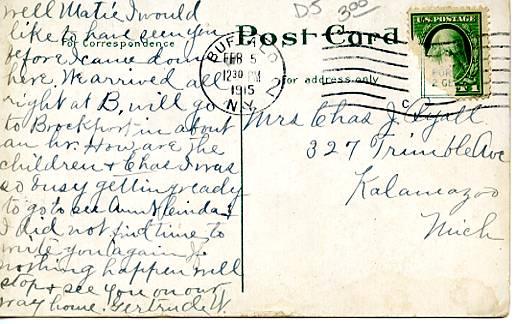 D5 3.00
Post Card
For Correspondence
For address only
BUFFALO
FEB 5
12 30 PM
1915
N.Y.
U.S. POSTAGE
well Matie I would
like to have seen you
before I came down
here. We arrived all
right at B, will go
to Brockport in about
an hr. How are the
children & Chas I was
so busy getting ready
to go to see Ann &
I did not find time to
write you again if
nothing happen will
stop & see you on our
way home. Gertrude W.
Mrs Chas J.
327 Trimble Ave
Kalamazoo
Mich